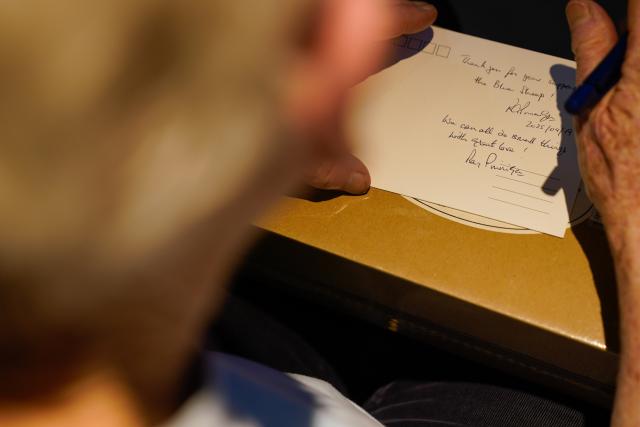 Thank you for your support
the Blue Sheep!
2025/04/19
We can all do small things
with great love!